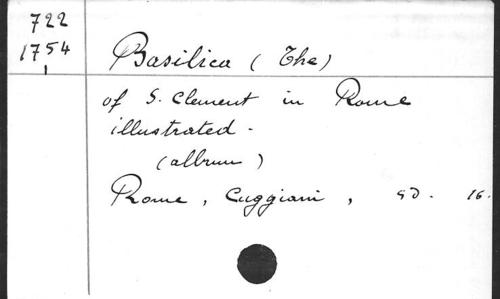 722
1754
Basilica (The)
of S. Clement in Rome
illustrated -
(album)
Rome, Cuggiani, SD. 16.